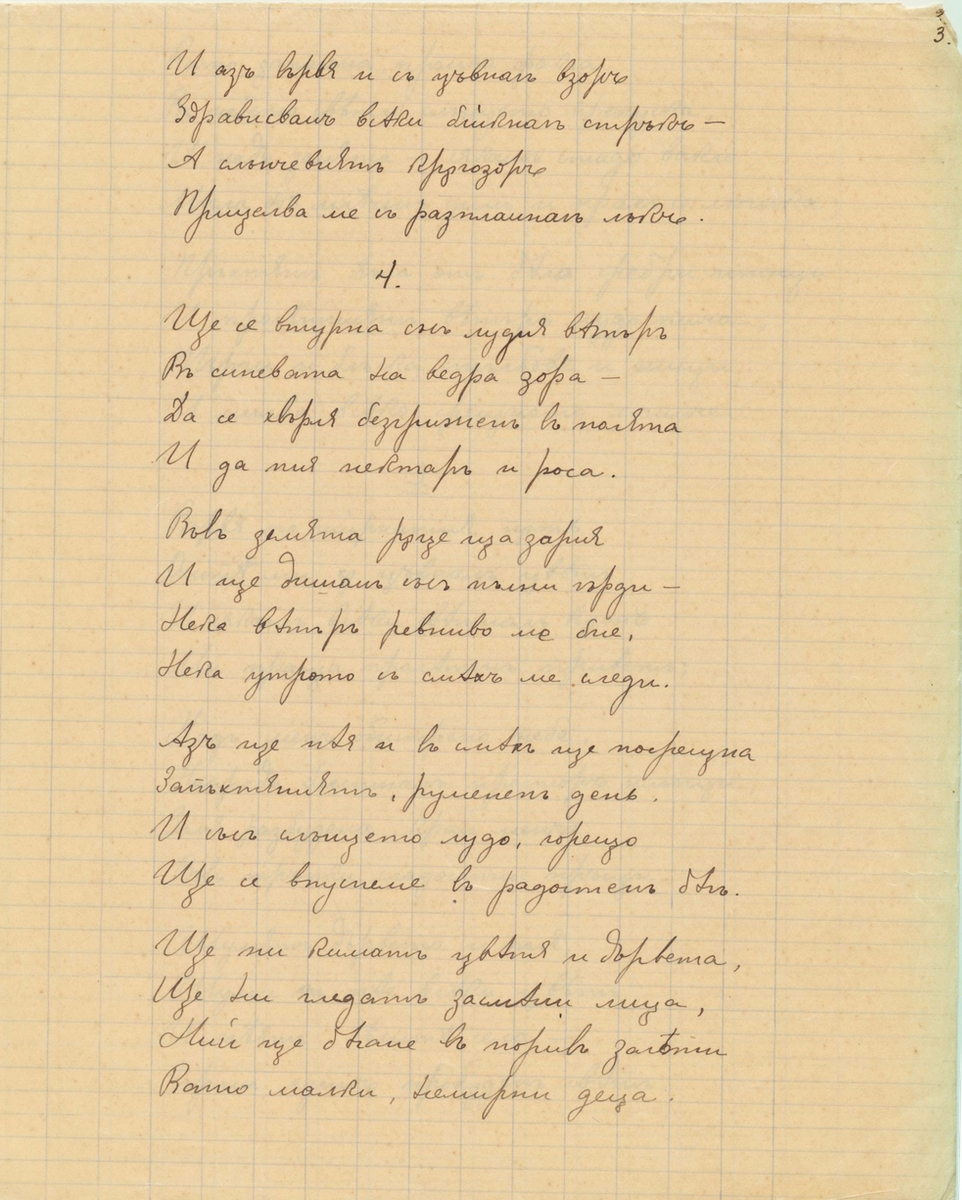 3.
И азъ вървя и съ цъвнал взоръ
Здрависвамъ всѣки бликнал стръкъ —
А слънчевиятъ кръгозоръ
Прицелва ме съ разплаинал лѫкъ.
4.
Ще се втурна със лудия вѣтъръ
Въ синевата на ведра зора —
Да се хвърля безгриженъ в полята
И да пия нектаръ и роса.
Вовъ земята рѫце ща зария
И ще дишамъ със пълни гърди —
Нека вѣтъръ ревниво ме бие,
Нека утрото съ смѣхъ ме следи.
Азъ ще пѣя и въ смѣхъ ще посрещна
Запъхтяниятъ, руменъ день.
И със слънцето лудо, горещо
Ще се впуснеме въ радостенъ бѣгъ.
Ще ни киматъ цвѣтя и дървета,
Ще ни гледатъ засмѣни лица,
Ний ще бѣгаме въ поривъ залѣти
Като малки, немирни деца.